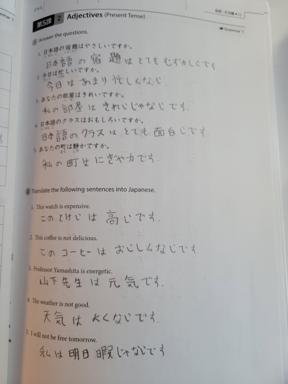 第5課 2 Adjectives (Present Tense)
Grammar 1
Answer the questions.
1. 日本語の宿題はやさしいですか。
日本語の宿題はとてもむずかしくです
2. 今日は忙しいですか。
今日はあまり忙しくなじ
3. あなたの部屋はきれいですか。
私の部屋はきれじじゃなじです.
4. 日本語のクラスはおもしろいですか。
日本語のクラスはとても面白じです.
5. あなたの町は静かですか。
私の町はにぎやかです.
Translate the following sentences into Japanese.
1. This watch is expensive.
このとけじは高じです.
2. This coffee is not delicious.
このコーヒーはおじしくなじです
3. Professor Yamashita is energetic.
山下先生は元気です.
4. The weather is not good.
天気はよくなじです.
5. I will not be free tomorrow.
私は明日暇じゃなじです